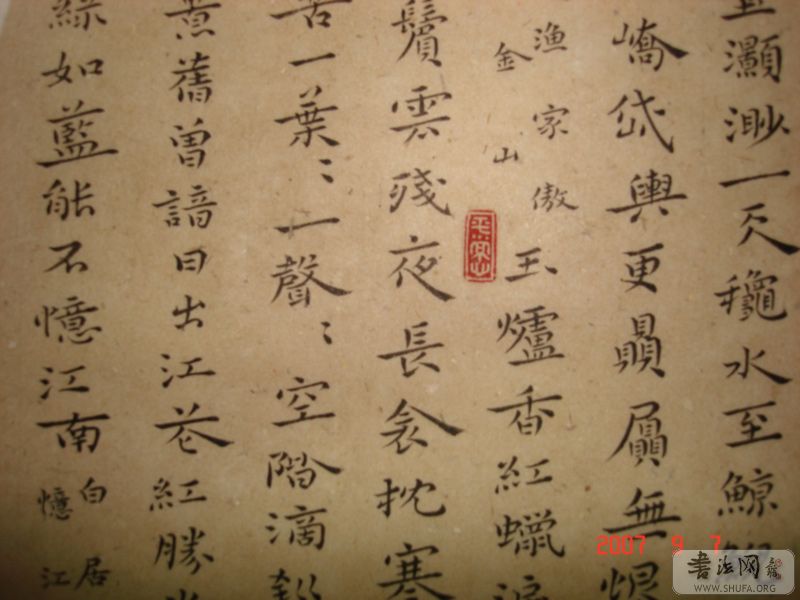 灝渺一天龝水至鯨
嶠岱輿更贔屭無
漁家傲
金山
玉爐香紅蠟淚
鬢雲殘夜長衾枕寒
苦一葉〻一聲〻空階滴
景舊曾諳日出江花紅勝
綠如藍能不憶江南
白居
憶江
2007 9 7
書法网
WWW.SHUFA.ORG